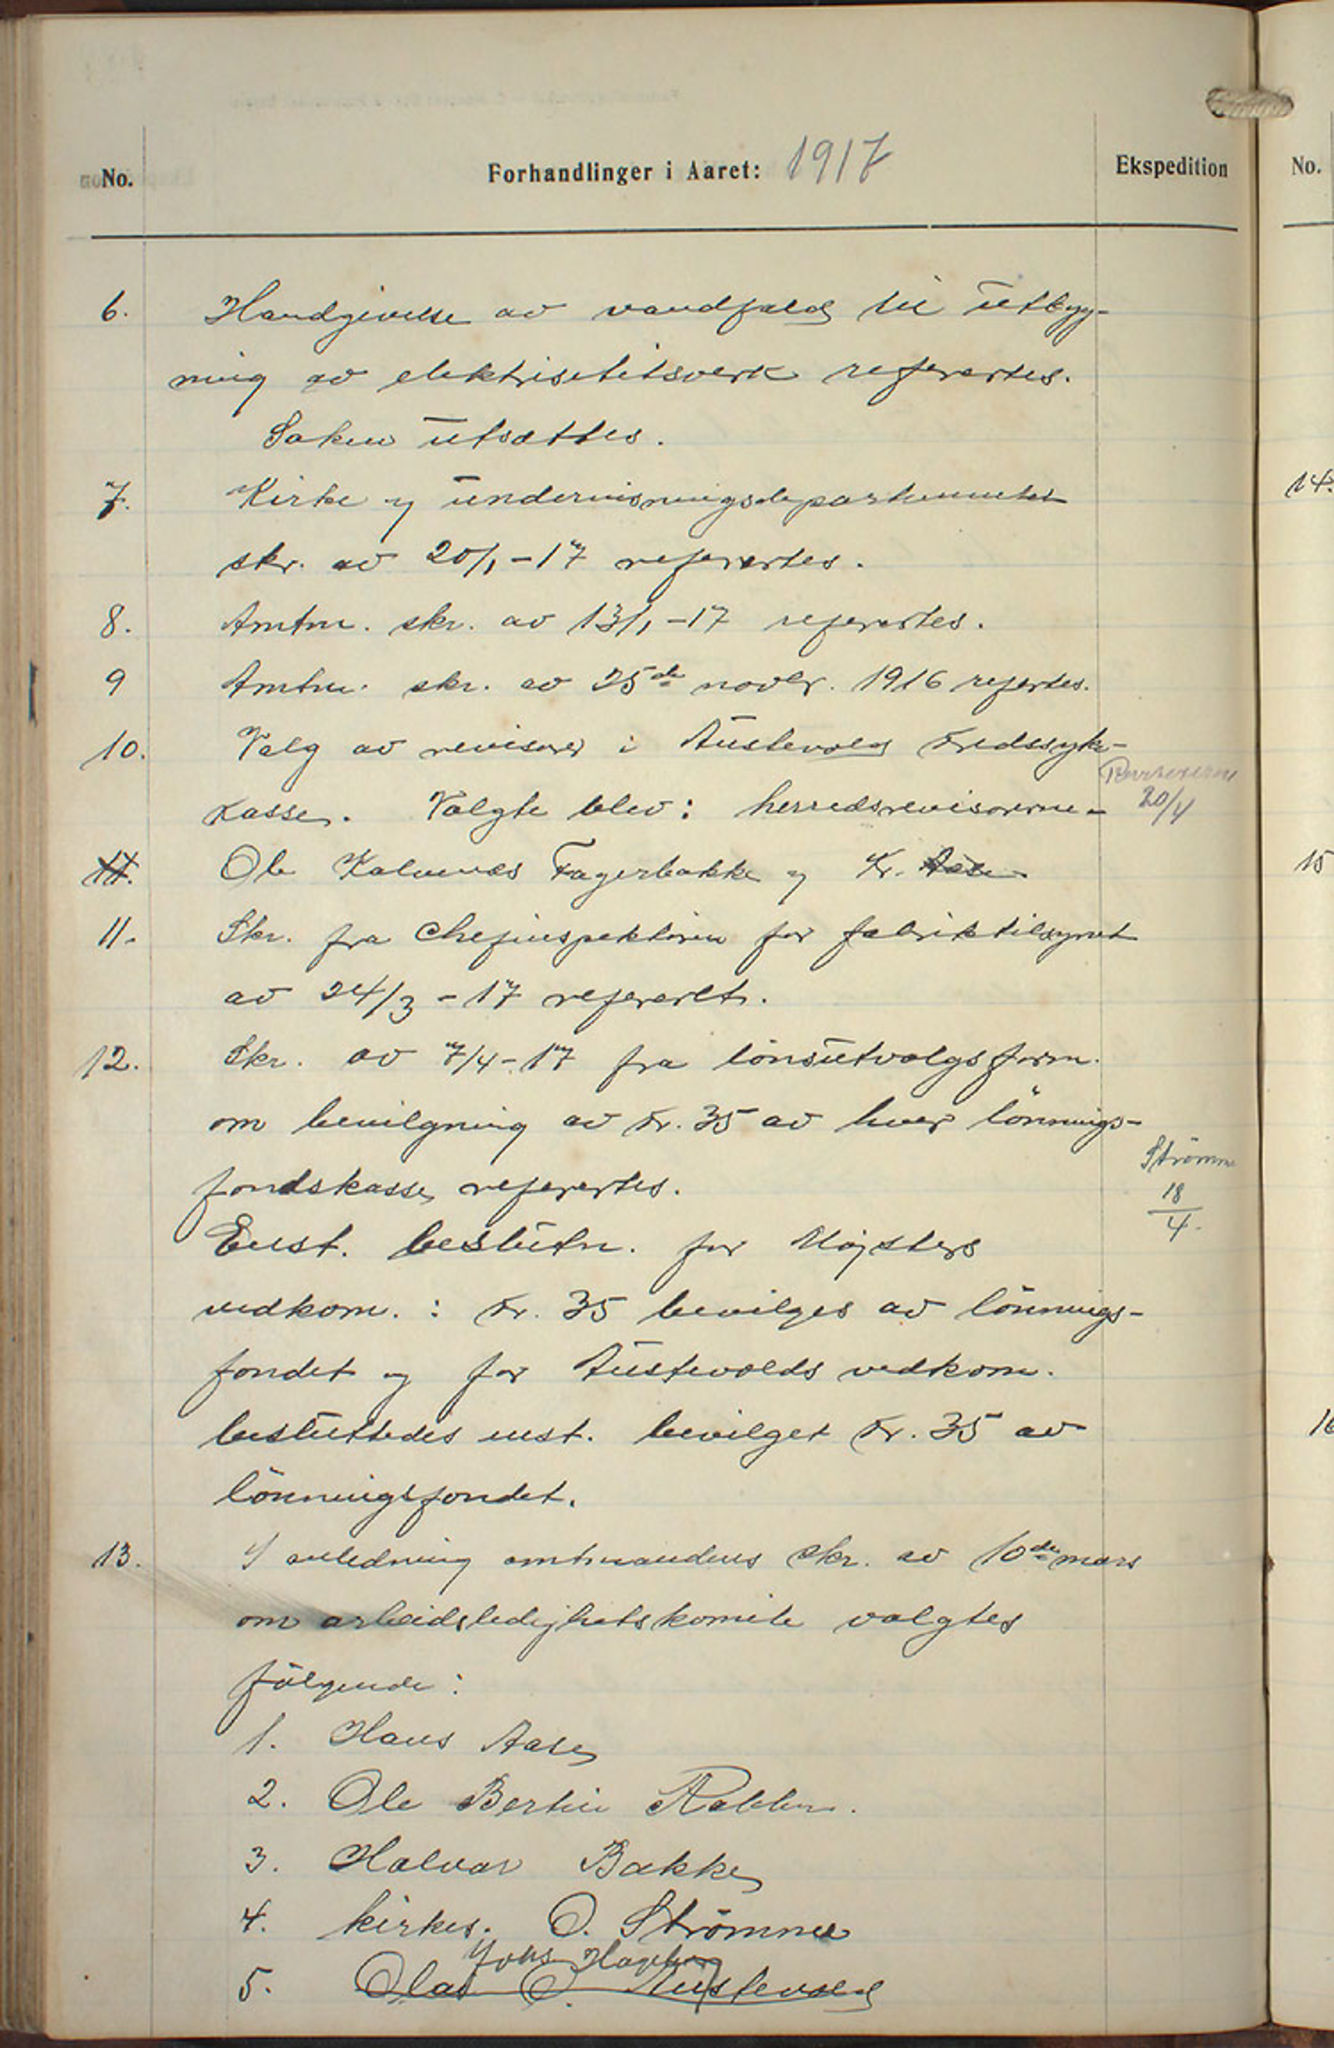 No. Forhandlinger i Aaret: 1917 Ekspedition No.
6. Handgivelse av vandfald til utbyg-
ning av elektrisitetsverk refertes.
Saken utsættes.
7. Kirke og undervisningsdepartementet
skr. av 20/1-17 refertes.
8. Amtm. skr. av 13/1-17 refertes.
9 Amtm. skr. av 25de novbr. 1916 refertes.
10. Valg av revisorer i Austevold kredssyke-
kasse. Valgte blev: herredsrevisorerne-
20/4
11. Ole Kalvenes Fagerbakke og Kr. Aase
11. Skr. fra chefinspektören for fabriktilsynet
av 24/3-17 referert.
12. Skr. av 7/4-17 fra lönsutvalgsform.
om bevilgning av kr. 35 av hver lönnings-
fondskasse refertes.
Strömme
18/4.
Enst. beslutn. for Møgsters
vedkom.: kr. 35 bevilges av lönnings-
fondet og for Austevolds vedkom.
besluttedes enst. bevilget kr. 35 av
lönningsfondet.
13. I anledning amtmandens skr. av 10de mars
om arbeidsledighetskomite valgtes
fölgende:
1. Hans Aase
2. Ole Bertin Rabben.
3. Halvar Bakke
4. kirkes. O. Strömme
Johs
5. Olav O. Austevold
14.
15
16